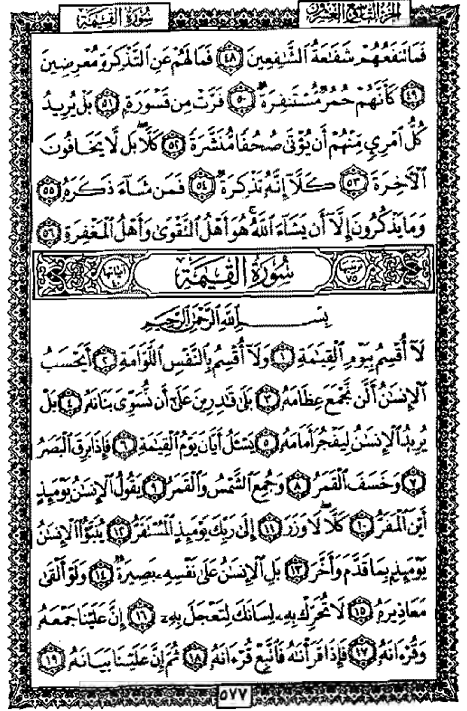 سُورَةُ القِيَامَةِ الجزء التاسع والعشرون
فَمَا تَنفَعُهُمْ شَفَٰعَةُ ٱلشَّٰفِعِينَ ٤٨ فَمَا لَهُمْ عَنِ ٱلتَّذْكِرَةِ مُعْرِضِينَ
٤٩ كَأَنَّهُمْ حُمُرٌ مُّسْتَنفِرَةٌ ٥٠ فَرَّتْ مِن قَسْوَرَةٍۭ ٥١ بَلْ يُرِيدُ
كُلُّ ٱمْرِئٍ مِّنْهُمْ أَن يُؤْتَىٰ صُحُفًا مُّنَشَّرَةً ٥٢ كَلَّا بَل لَّا يَخَافُونَ
ٱلْأَخِرَةَ ٥٣ كَلَّآ إِنَّهُۥ تَذْكِرَةٌ ٥٤ فَمَن شَآءَ ذَكَرَهُۥ ٥٥
وَمَا يَذْكُرُونَ إِلَّآ أَن يَشَآءَ ٱللَّهُ هُوَ أَهْلُ ٱلتَّقْوَىٰ وَأَهْلُ ٱلْمَغْفِرَةِ ٥٦
ترتيبها ٧٥ سُورَةُ القِيَامَةِ آياتها ٤٠
بِسْمِ ٱللَّهِ ٱلرَّحْمَٰنِ ٱلرَّحِيمِ
لَآ أُقْسِمُ بِيَوْمِ ٱلْقِيَٰمَةِ ١ وَلَآ أُقْسِمُ بِٱلنَّفْسِ ٱللَّوَّامَةِ ٢ أَيَحْسَبُ
ٱلْإِنسَٰنُ أَلَّن نَّجْمَعَ عِظَامَهُۥ ٣ بَلَىٰ قَٰدِرِينَ عَلَىٰٓ أَن نُّسَوِّىَ بَنَانَهُۥ ٤ بَلْ
يُرِيدُ ٱلْإِنسَٰنُ لِيَفْجُرَ أَمَامَهُۥ ٥ يَسْـَٔلُ أَيَّانَ يَوْمُ ٱلْقِيَٰمَةِ ٦ فَإِذَا بَرِقَ ٱلْبَصَرُ
٧ وَخَسَفَ ٱلْقَمَرُ ٨ وَجُمِعَ ٱلشَّمْسُ وَٱلْقَمَرُ ٩ يَقُولُ ٱلْإِنسَٰنُ يَوْمَئِذٍ
أَيْنَ ٱلْمَفَرُّ ١٠ كَلَّا لَا وَزَرَ ١١ إِلَىٰ رَبِّكَ يَوْمَئِذٍ ٱلْمُسْتَقَرُّ ١٢ يُنَبَّؤُا۟ ٱلْإِنسَٰنُ
يَوْمَئِذٍۭ بِمَا قَدَّمَ وَأَخَّرَ ١٣ بَلِ ٱلْإِنسَٰنُ عَلَىٰ نَفْسِهِۦ بَصِيرَةٌ ١٤ وَلَوْ أَلْقَىٰ
مَعَاذِيرَهُۥ ١٥ لَا تُحَرِّكْ بِهِۦ لِسَانَكَ لِتَعْجَلَ بِهِۦٓ ١٦ إِنَّ عَلَيْنَا جَمْعَهُۥ
وَقُرْءَانَهُۥ ١٧ فَإِذَا قَرَأْنَٰهُ فَٱتَّبِعْ قُرْءَانَهُۥ ١٨ ثُمَّ إِنَّ عَلَيْنَا بَيَانَهُۥ ١٩
٥٧٧